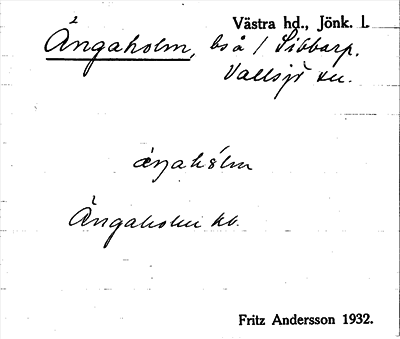 Västra hd., Jönk. l.
Ångaholm, bs å / Sibbarp.
Vallsjö sn.
áŋahólm
Ångaholm kb.
Fritz Andersson 1932.